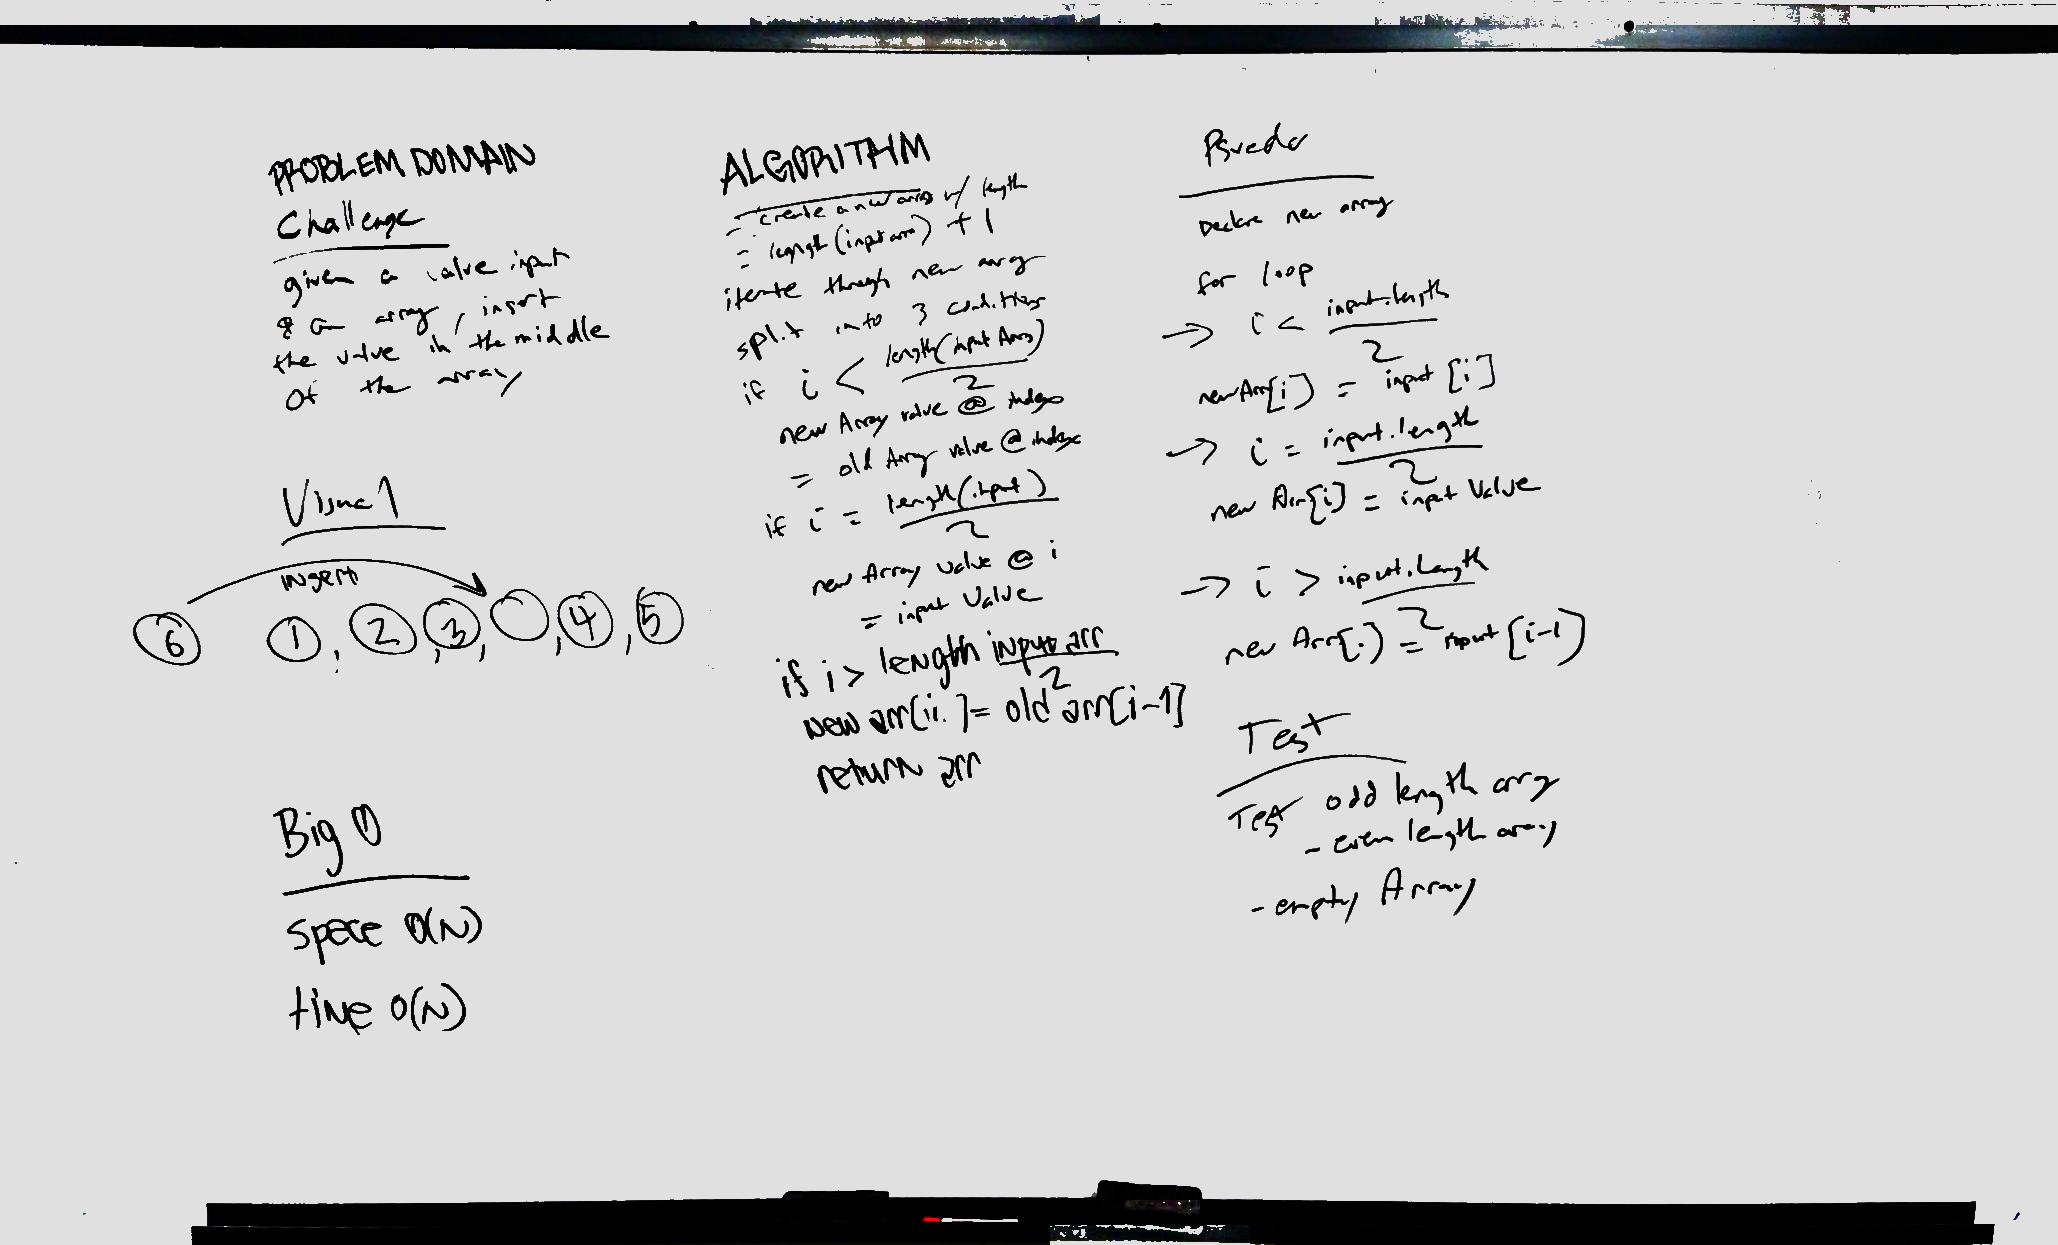 PROBLEM DOMAIN
Challenge
given a value input
& a array, insert
the value in the middle
of the array
Visual
insert
6 1, 2, 3, , 4, 5
Big O
space O(N)
time O(N)
ALGORITHM
- create a new array w/ length
= length(input arr) + 1
iterate through new array
split into 3 conditions
if i < length(input Array)
2
new Array value @ index
= old Array value @ index
if i = length(input)
2
new Array value @ i
= input value
if i > length input arr
2
new arr[i] = old arr[i-1]
return arr
Psuedo
Declare new array
for loop
→ i < input.length
2
newArr[i] = input [i]
→ i = input.length
2
new Arr[i] = input value
→ i > input.length
2
new Arr[i] = input [i-1]
Test
Test odd length array
- even length array
- empty Array